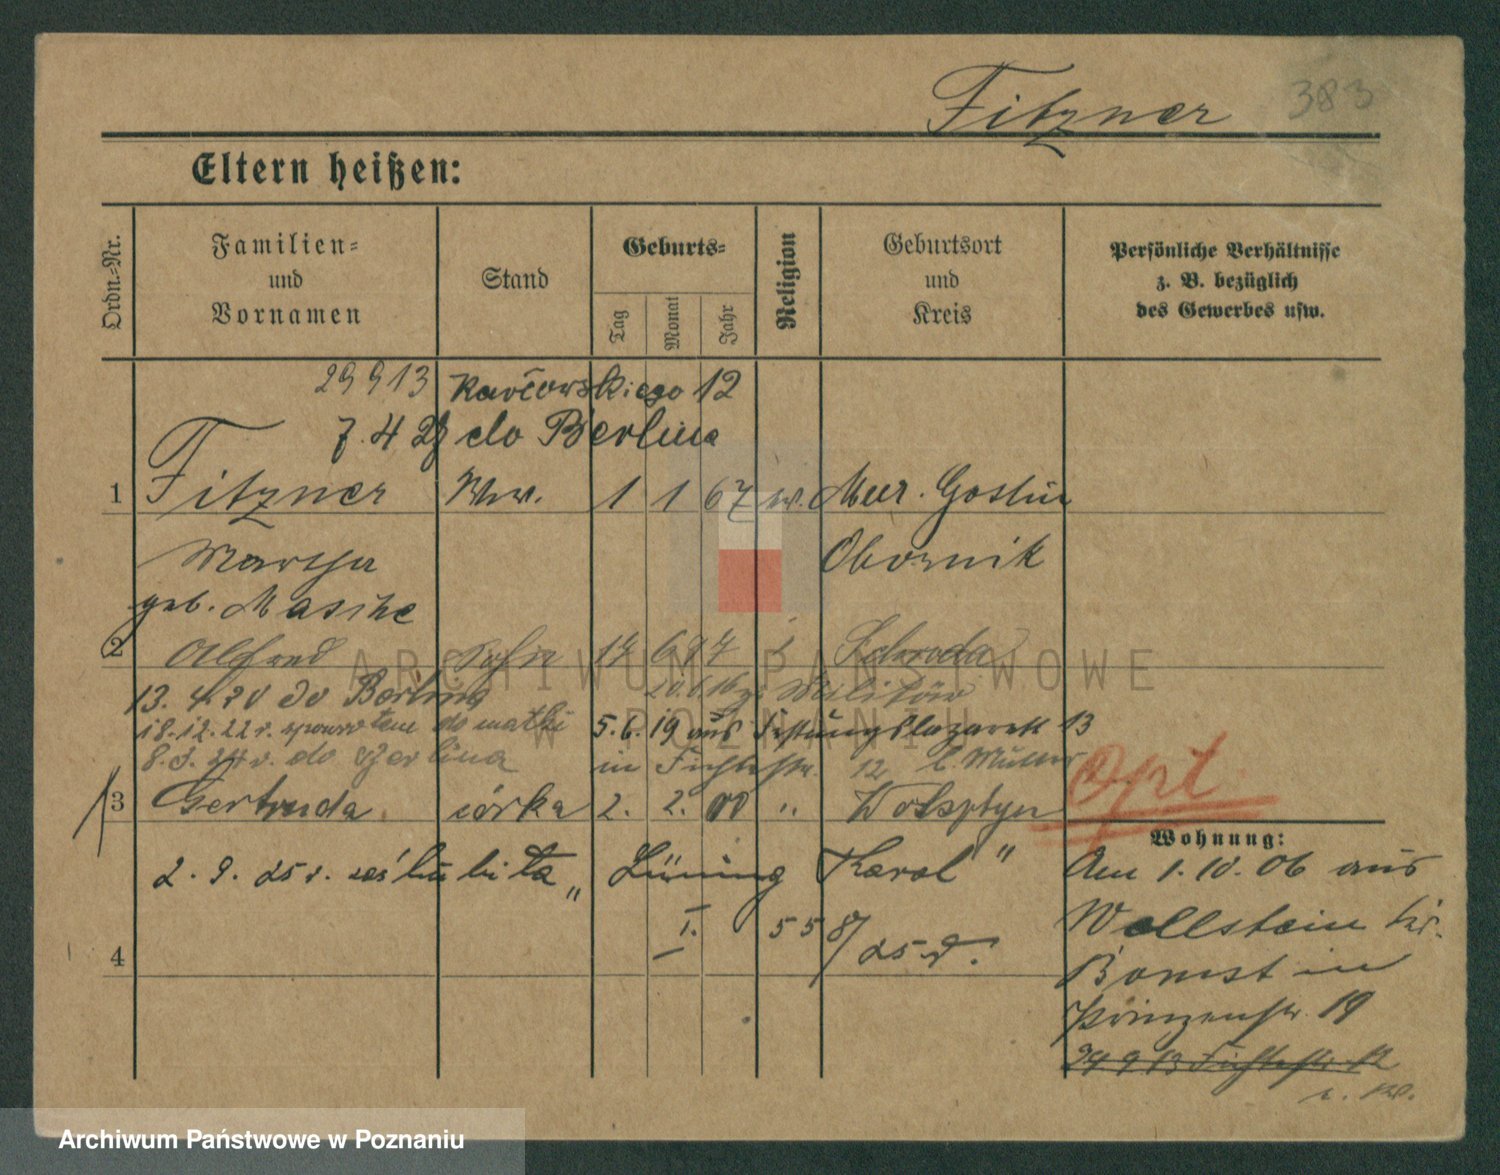 Fitzner 383
Eltern heißen:
Ordn.-Nr.
Familien-
und
Vornamen
Stand
Geburts-
Tag
Monat
Jahr
Religion
Geburtsort
und
Kreis
Persönliche Verhältnisse
z. B. bezüglich
des Gewerbes usw.
29 9 13 Karčowskiego 12
7. 4 do Berlina
1 Fitzner Ww. 1 1 67 ev. Mur. Goslin
Martha Obornik
geb. Masche
2 Alfred Sohn 17 6 97 Schroda
13. 4 20 do Berlina
18.12.22 r. spowrotem do matki 5.6.19 aus Festungslazarett 13
8.3.24 r. do Berlina in Fichtestr. 12 b. Mutter
3 Gertruda córka 2. 2. 00 " Wolsztyn
Opt.
2. 9. 25 r. zaślubiła „Lüning Karol"
I. 558/25 r.
4
Wohnung:
Am 1.10.06 aus
Wollstein Kr.
Bomst in
Prinzenstr. 19
Fichtestr. 12
ARCHIWUM PAŃSTWOWE
W POZNANIU
Archiwum Państwowe w Poznaniu